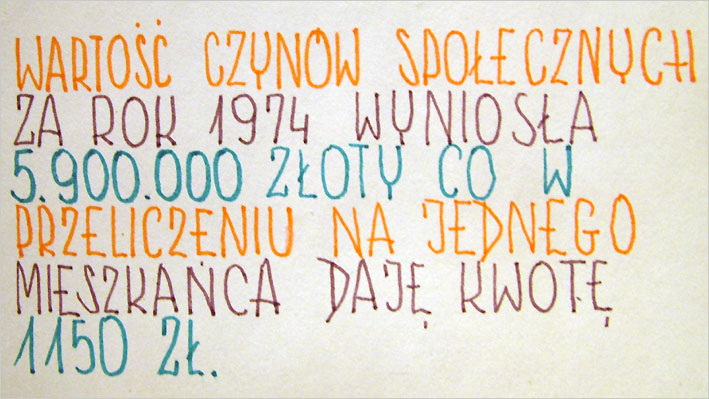 WARTOŚĆ CZYNÓW SPOŁECZNYCH
ZA ROK 1974 WYNIOSŁA
5.900.000 ZŁOTY CO W
PRZELICZENIU NA JEDNEGO
MIESZKAŃCA DAJĘ KWOTĘ
1150 ZŁ.